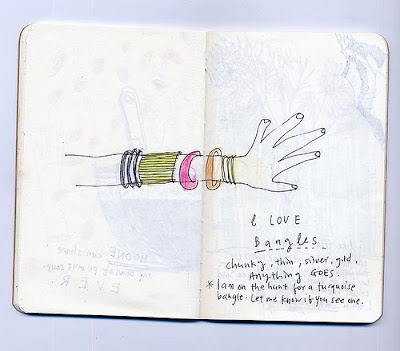 NO ONE can share
EVER.
I LOVE
Bangles
chunky, thin, silver, gold,
Anything GOES.
* I am on the hunt for a turquoise
bangle. Let me know if you see one.